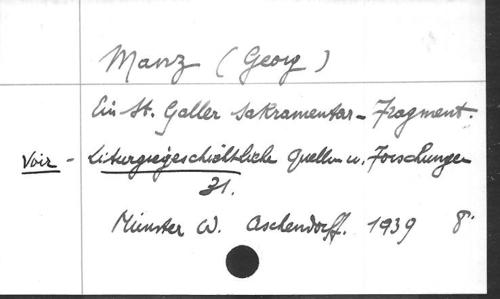 Manz (Georg)
Ein St. Galler Sakramentar-Fragment.
Voir - Liturgiegeschichtliche Quellen u. Forschungen
31.
Münster W. Aschendorff. 1939 8°